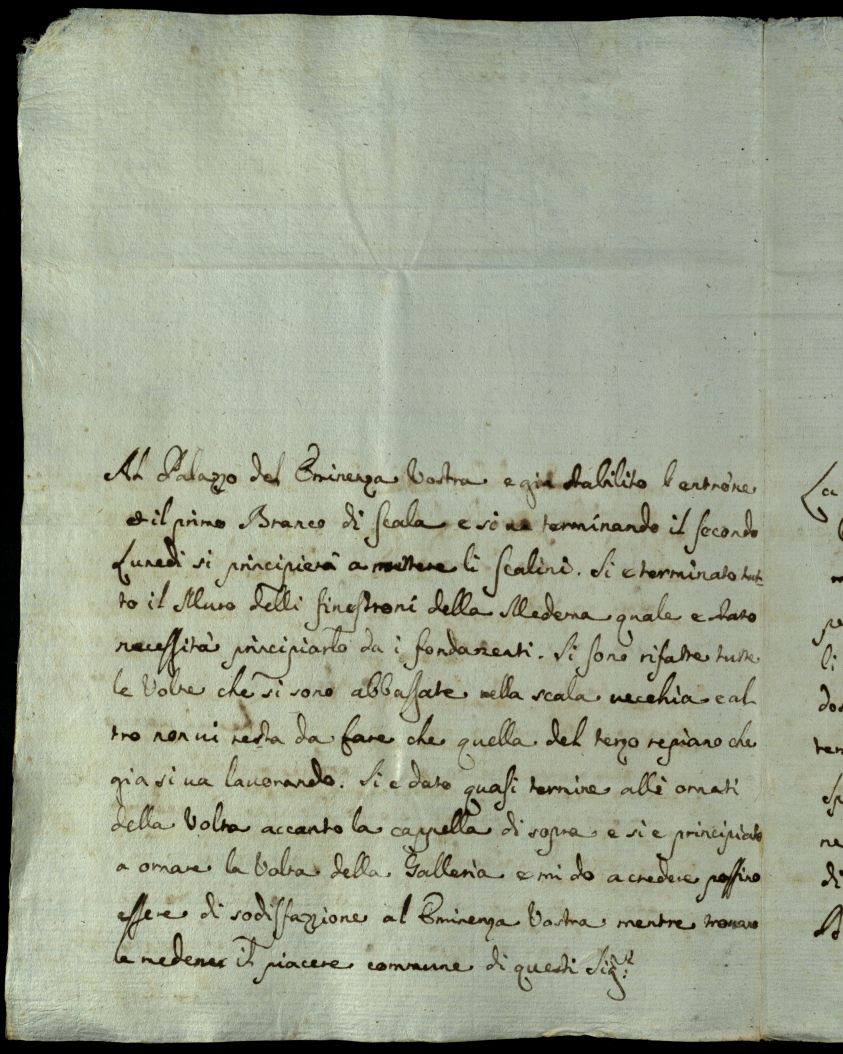 Al Palazzo del Eminenza Vostra e gia stabilito l'entrone
et il primo Branco di scala e si va terminando il secondo
Lunedi si principierà a mettere li scalini. Si e terminato tut-
to il Muro delli finestroni della Medema quale e stato
necessità principiarlo da i fondamenti. Si sono rifatte tutte
le Volte che si sono abbassate nella scala vecchia e al
tro non vi resta da fare che quella del terzo repiano che
gia si va lavorando. Si e dato quasi termine alli ornati
della Volta accanto la cappella di sopra e si e principiato
a ornare la Volta della Galleria e mi do a credere possino
essere di sodisfazzione al Eminenza Vostra mentre trovano
le medeme il piacere commune di questi Sig.ri
La
m
pe
li
dos
ter
sp
ne
di
B